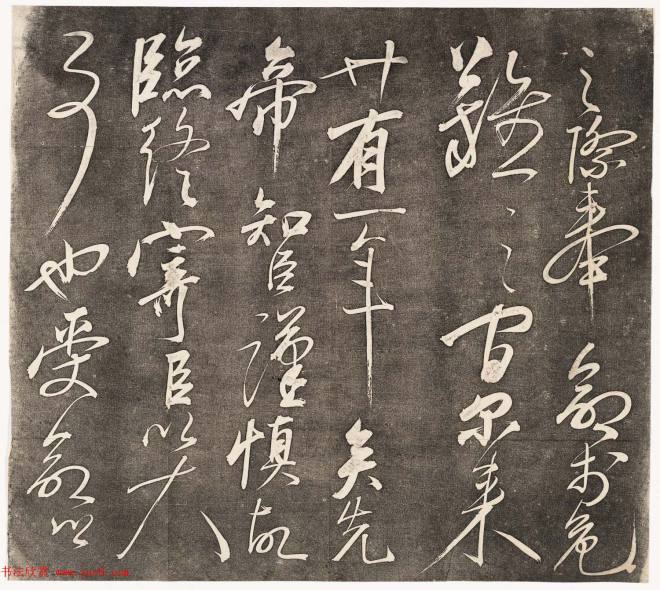 之際奉命於危
難之間尔来
廿有一年矣先
帝知臣謹慎故
臨終寄臣以大
事也受命以
书法欣赏